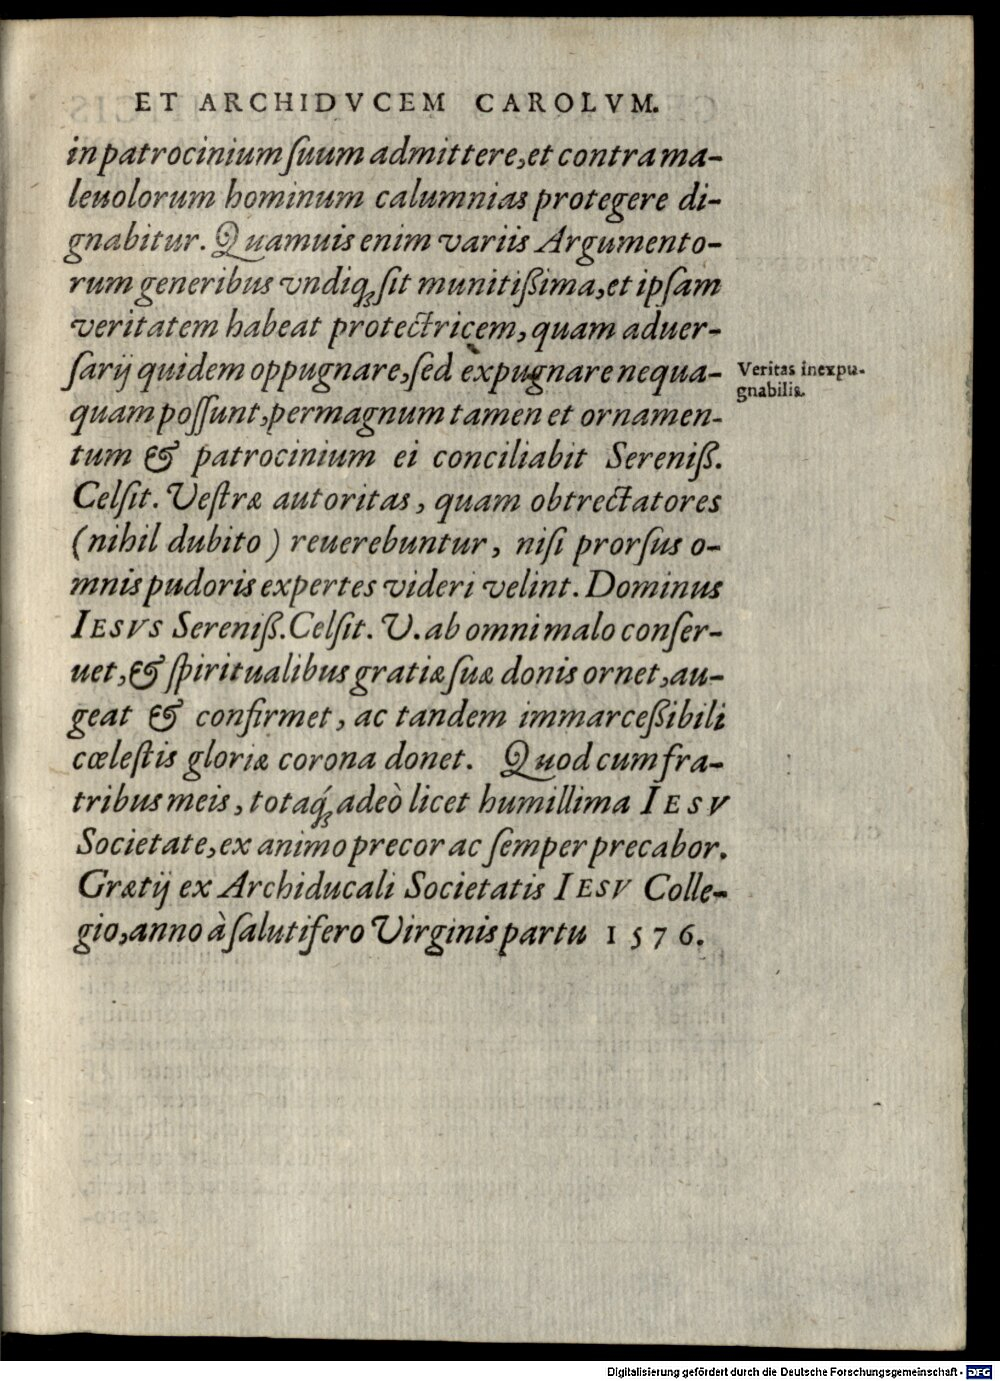 ET ARCHIDVCEM CAROLVM.
in patrocinium ſuum admittere, et contra ma-
leuolorum hominum calumnias protegere di-
gnabitur. Quamuis enim variis Argumento-
rum generibus vndiq; ſit munitißima, et ipſam
veritatem habeat protectricem, quam aduer-
ſarij quidem oppugnare, ſed expugnare nequa-
quam poſſunt, permagnum tamen et ornamen-
tum & patrocinium ei conciliabit Sereniß.
Celſit. Veſtræ autoritas, quam obtrectatores
(nihil dubito) reuerebuntur, niſi prorſus o-
mnis pudoris expertes videri velint. Dominus
IESVS Sereniß. Celſit. V. ab omni malo conſer-
uet, & ſpiritualibus gratiæ ſuæ donis ornet, au-
geat & confirmet, ac tandem immarceßibili
cœleſtis gloriæ corona donet. Quod cum fra-
tribus meis, totaq́; adeò licet humillima IESV
Societate, ex animo precor ac ſemper precabor.
Grætij ex Archiducali Societatis IESV Colle-
gio, anno à ſalutifero Virginis partu 1576.
Veritas inexpu-
gnabilis.
Digitalisierung gefördert durch die Deutsche Forschungsgemeinschaft - DFG